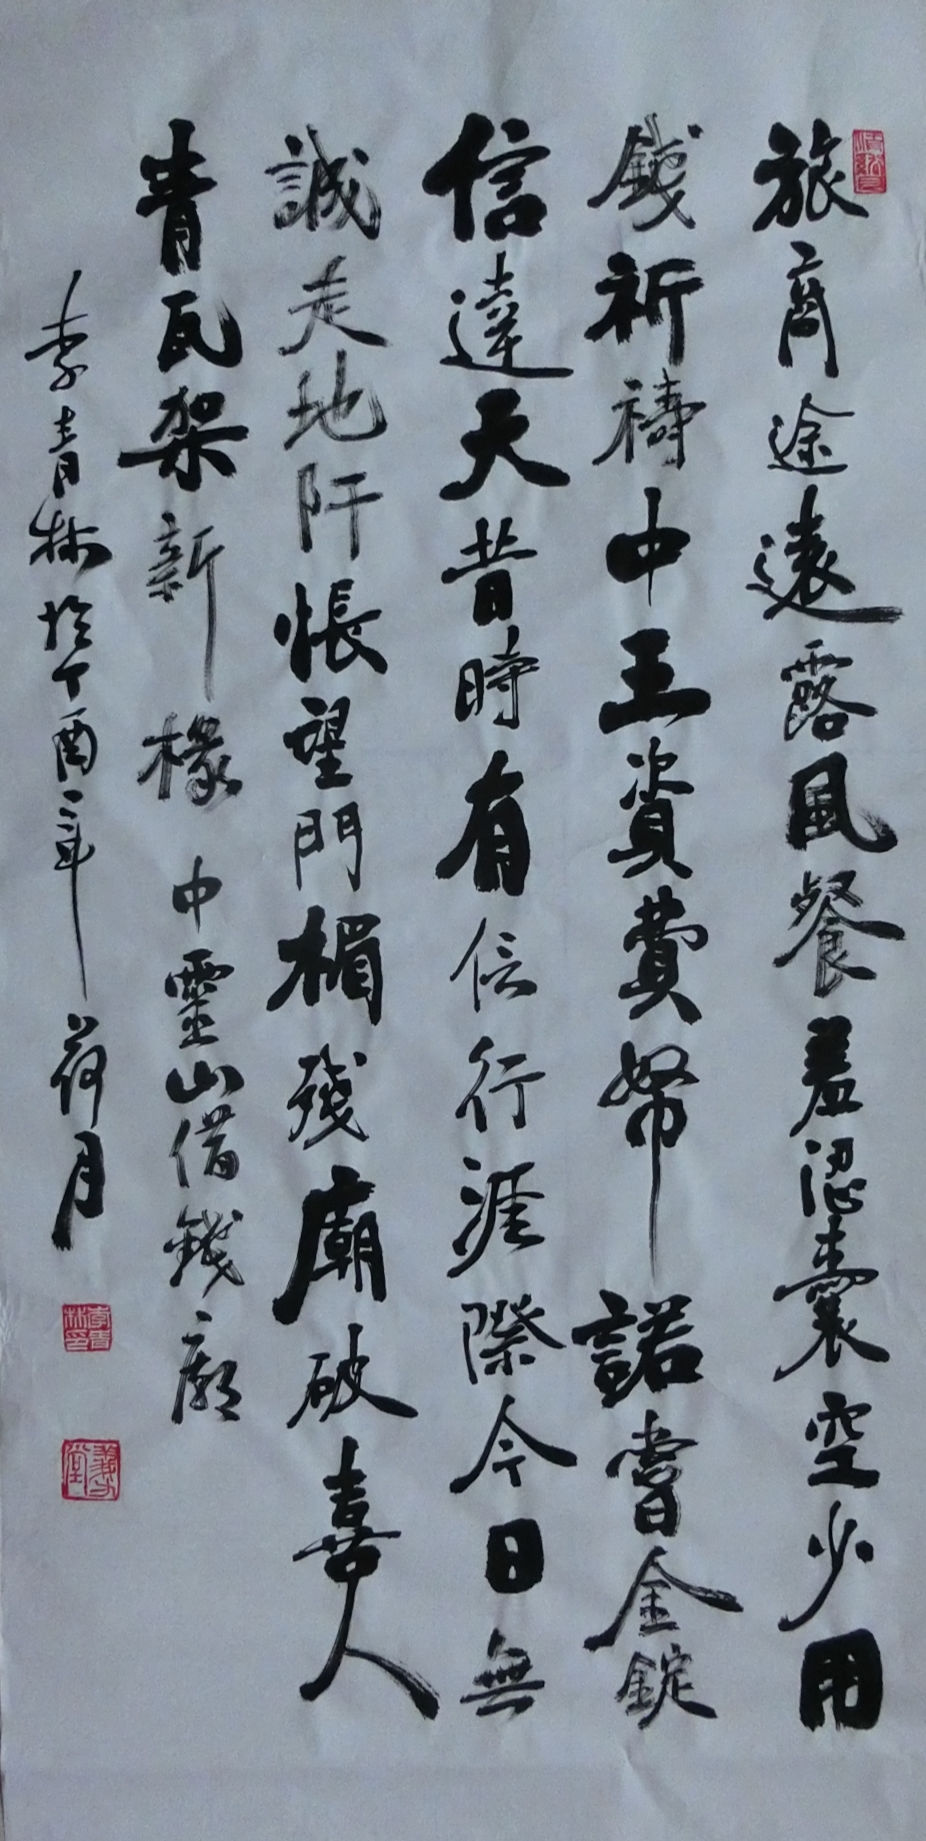 旅商途遠露風餐羞認囊空少用
錢祈禱中王資費帑諾嘗金錠
信達天昔時有信行涯際今日無
誠走地阡悵望門楣殘廟破喜人
青瓦架新椽 中靈山借錢廟
李青林於丁酉年荷月
李青林印